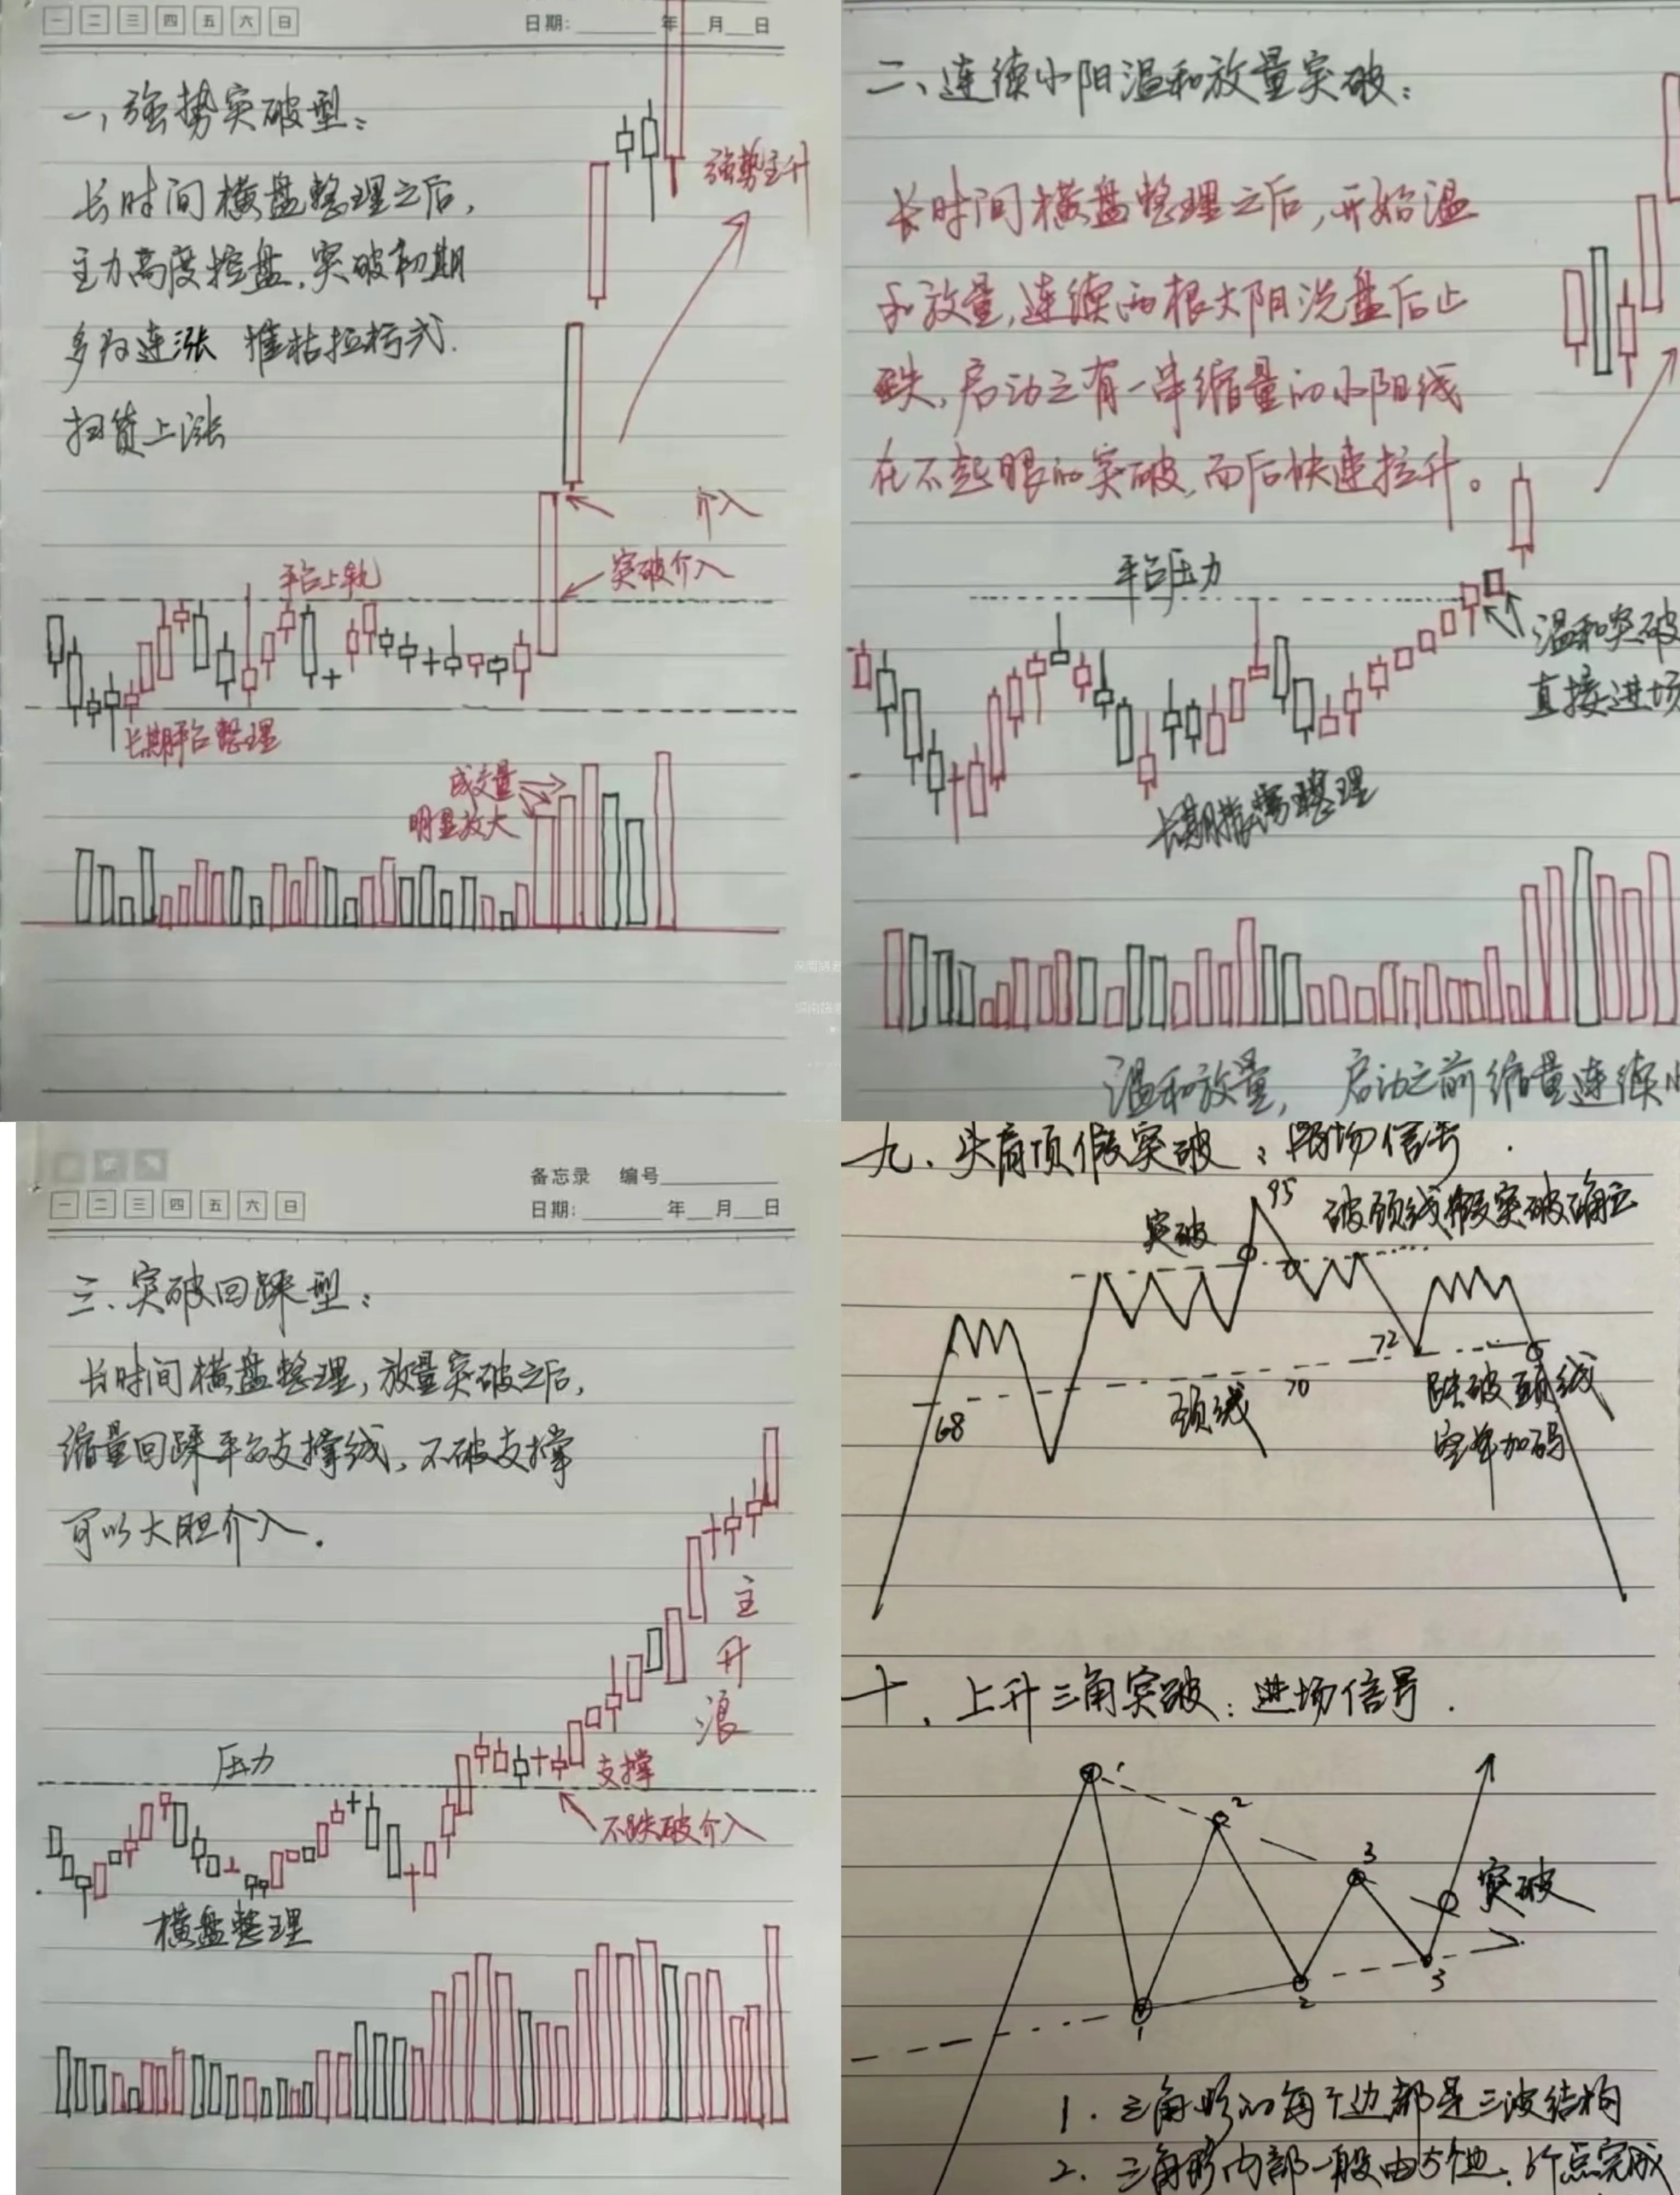 一 二 三 四 五 六 日
日期: 年 月 日
一、强势突破型:
长时间横盘整理之后,
主力高度控盘,突破初期
多为连涨 摧枯拉朽式.
扫货上涨
强势主升
介入
突破介入
平台上轨
长期平台整理
成交量
明显放大
二、连续小阳温和放量突破:
长时间横盘整理之后,开始温
和放量,连续两根大阴洗盘后止
跌,启动之有一串缩量的小阳线
在不起眼的突破,而后快速拉升。
平台压力
温和突破
直接进场
长期横盘整理
温和放量, 启动之前缩量连续
备忘录 编号
一 二 三 四 五 六 日
日期: 年 月 日
三、突破回踩型:
长时间横盘整理,放量突破之后,
缩量回踩平台支撑线,不破支撑
可以大胆介入.
主升浪
压力
支撑
不跌破介入
横盘整理
九、头肩顶假突破:离场信号.
突破
95
破颈线假突破确立
72
68
颈线
70
跌破颈线
空单加码
十、上升三角突破:进场信号.
1
2
3
突破
1
2
3
1. 三角形的每个边都是三波结构
2. 三角形内部一般由5个边、6个点完成